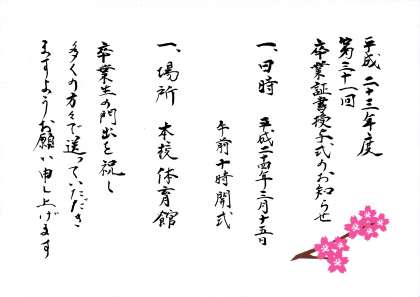 平成二十三年度
第三十一回
卒業証書授与式のお知らせ
一、日時 平成二十四年三月十五日
午前十時開式
一、場所 本校体育館
卒業生の門出を祝し
多くの方々で送っていただき
ますようお願い申し上げます